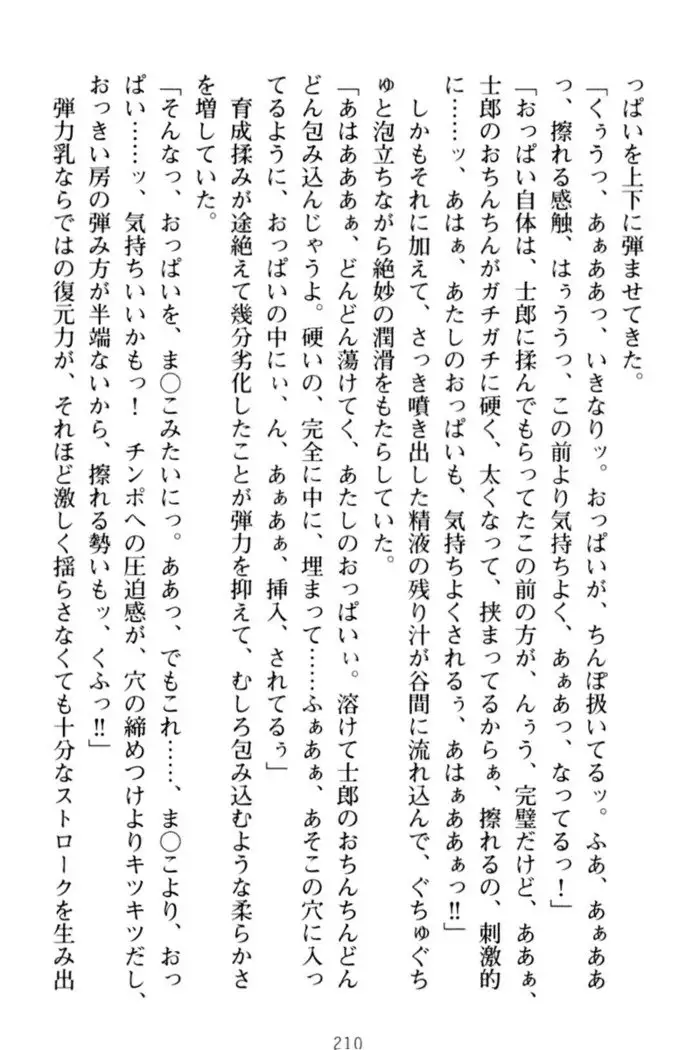 っぱいを上下に弾ませてきた。
「くぅうっ、あぁああっ、いきなりッ。おっぱいが、ちんぽ扱いてるッ。ふあ、あぁああ
っ、擦れる感触、はぅううっ、この前より気持ちよく、あぁあっ、なってるっ！」
「おっぱい自体は、士郎に揉んでもらってたこの前の方が、んぅう、完璧だけど、ああぁ、
士郎のおちんちんがガチガチに硬く、太くなって、挟まってるからぁ、擦れるの、刺激的
に……ッ、あはぁ、あたしのおっぱいも、気持ちよくされるぅ、あはぁああぁっ‼」
しかもそれに加えて、さっき噴き出した精液の残り汁が谷間に流れ込んで、ぐちゅぐち
ゅと泡立ちながら絶妙の潤滑をもたらしていた。
「あはあああぁ、どんどん蕩けてく、あたしのおっぱいぃ。溶けて士郎のおちんちんどん
どん包み込んじゃうよ。硬いの、完全に中に、埋まって……ふぁあぁ、あそこの穴に入っ
てるように、おっぱいの中にぃ、ん、あぁあぁ、挿入、されてるぅ」
育成揉みが途絶えて幾分劣化したことが弾力を抑えて、むしろ包み込むような柔らかさ
を増していた。
「そんなっ、おっぱいを、ま〇こみたいにっ。ああっ、でもこれ……、ま〇こより、おっ
ぱい……ッ、気持ちいいかもっ！　チンポへの圧迫感が、穴の締めつけよりキツキツだし、
おっきい房の弾み方が半端ないから、擦れる勢いもッ、くふっ‼」
弾力乳ならではの復元力が、それほど激しく揺らさなくても十分なストロークを生み出
210